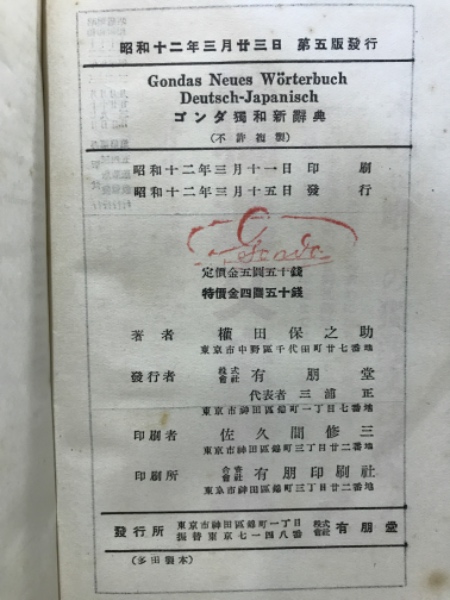 昭和十二年三月廿三日 第五版發行
Gondas Neues Wörterbuch
Deutsch-Japanisch
ゴンダ獨和新辭典
(不許複製)
昭和十二年三月十一日 印刷
昭和十二年三月十五日 發行
Gonda
定價金五圓五十錢
特價金四圓五十錢
著者 權田保之助
東京市中野區千代田町廿七番地
發行者 株式會社 有朋堂
代表者 三浦正
東京市神田區錦町一丁目七番地
印刷者 佐久間修三
東京市神田區錦町三丁目廿二番地
印刷所 合資會社 有朋印刷社
東京市神田區錦町三丁目廿二番地
發行所 東京市神田區錦町一丁目 株式會社 有朋堂
振替東京七一四八番
(多田製本)